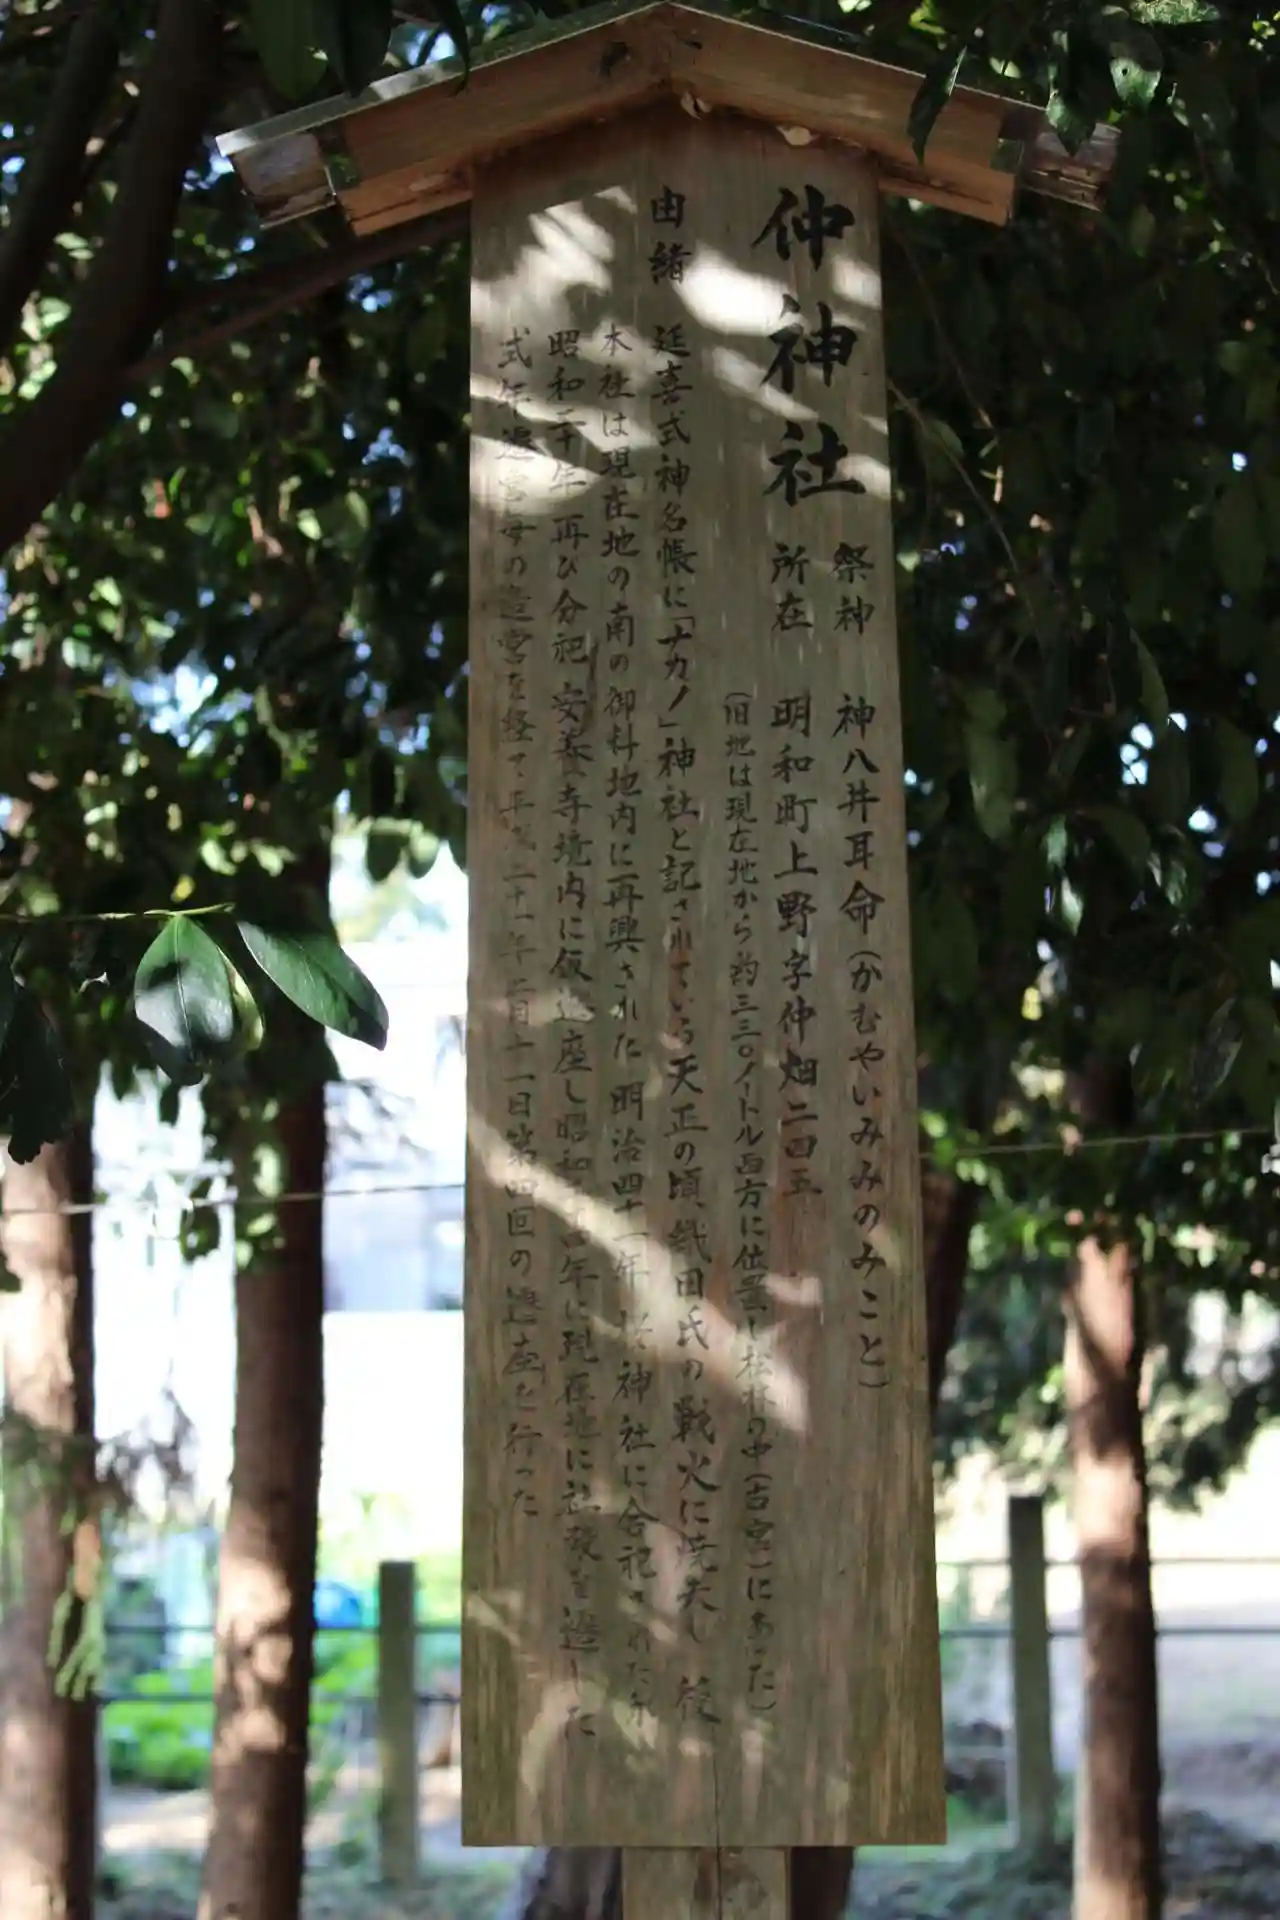 仲神社
祭神 神八井耳命(かむやいみみのみこと)
所在 明和町上野字仲畑二四五
(旧地は現在地から約三三〇メートル西方に位置し松林の中(古宮)にあった)
由緒 延喜式神名帳に「ナカノ」神社と記されている天正の頃、織田氏の戦火に焼失し 後
本社は現在地の南の御料地内に再興された 明治四十一年 神社に合祀されたが
昭和二十年 再び分祀 安養寺境内に仮遷座し昭和 四年に現在地に社殿を造した
式年遷宮毎の造営を経て平成二十一年二月十一日第四回の遷座を行った